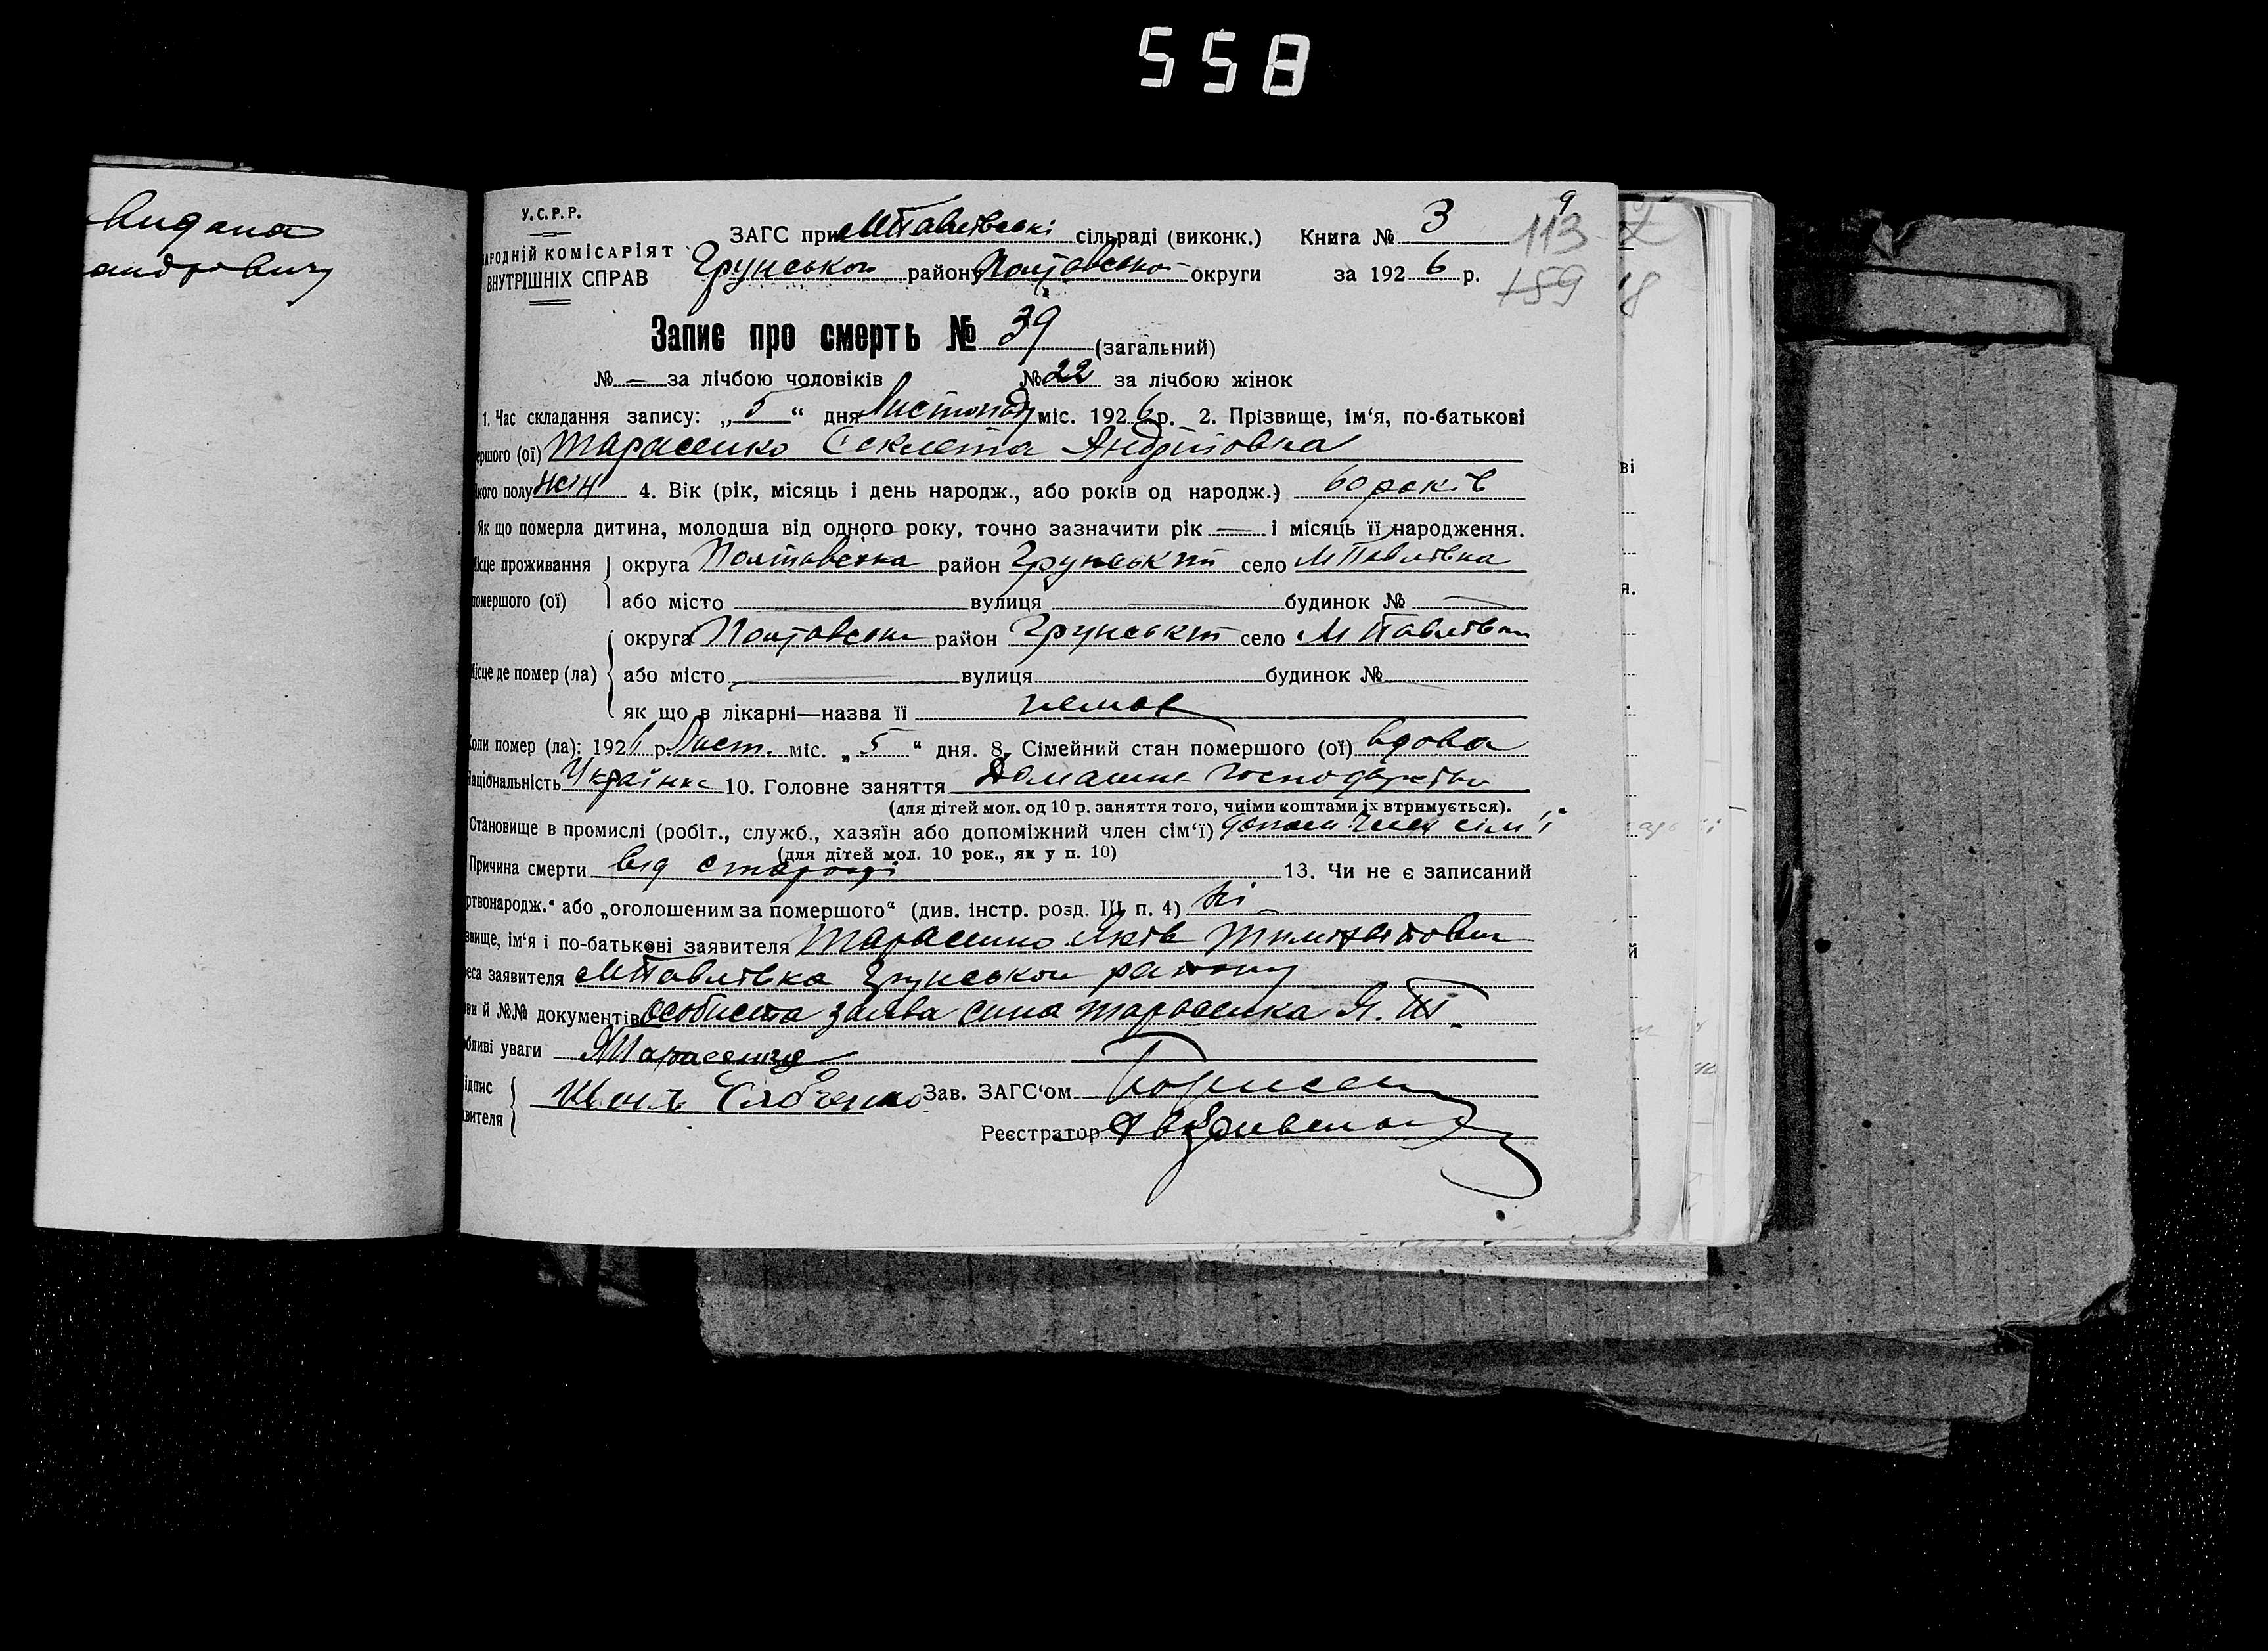 558
Видана
андровичу
У.С.Р.Р.
АРОДНІЙ КОМІСАРІЯТ
ВНУТРІШНІХ СПРАВ
ЗАГС при МПавлівські сільраді (виконк.) Книга № 3
Грунського району Полтавської округи за 1926 р.
9
113
159
18
Запис про смерть № 39 (загальний)
№ — за лічбою чоловіків № 22 за лічбою жінок
1. Час складання запису: „5“ дня Листопад міс. 1926 р. 2. Прізвище, ім‘я, по-батькові
ершого (ої) Тарасенко Секлета Андріівна
кого полу жін 4. Вік (рік, місяць і день народж., або років од народж.) 60 років
Як що померла дитина, молодша від одного року, точно зазначити рік — і місяць її народження.
ісце проживання округа Полтавська район Грунський село МПавлівка
омершого (ої) або місто — вулиця — будинок № —
округа Полтавська район Грунський село МПавлівка
ісце де помер (ла) або місто — вулиця будинок №
як що в лікарні—назва її немає
оли помер (ла): 1926 р. Лист. міс. „5“ дня. 8. Сімейний стан померлого (ої) вдова
аціональність Українка 10. Головне заняття Домашнє господарство
(для дітей мол. од 10 р. заняття того, чиїми коштами їх втримується).
Становище в промислі (робіт., служб., хазяїн або допоміжний член сім‘ї) допом член сім'ї
(для дітей мол. 10 рок., як у п. 10)
Причина смерти від старості 13. Чи не є записаний
ртвонародж.“ або „оголошеним за померлого“ (див. інстр. розд. III п. 4) Ні
звище, ім‘я і по-батькові заявителя Тарасенко Яків
еса заявителя МПавлівка Грунського району
ви й №№ документів особиста заява сина Тарасенка Я. Т.
бливі уваги ЯТарасенко
ідпис
явителя
Зав. ЗАГС‘ом
Реєстратор